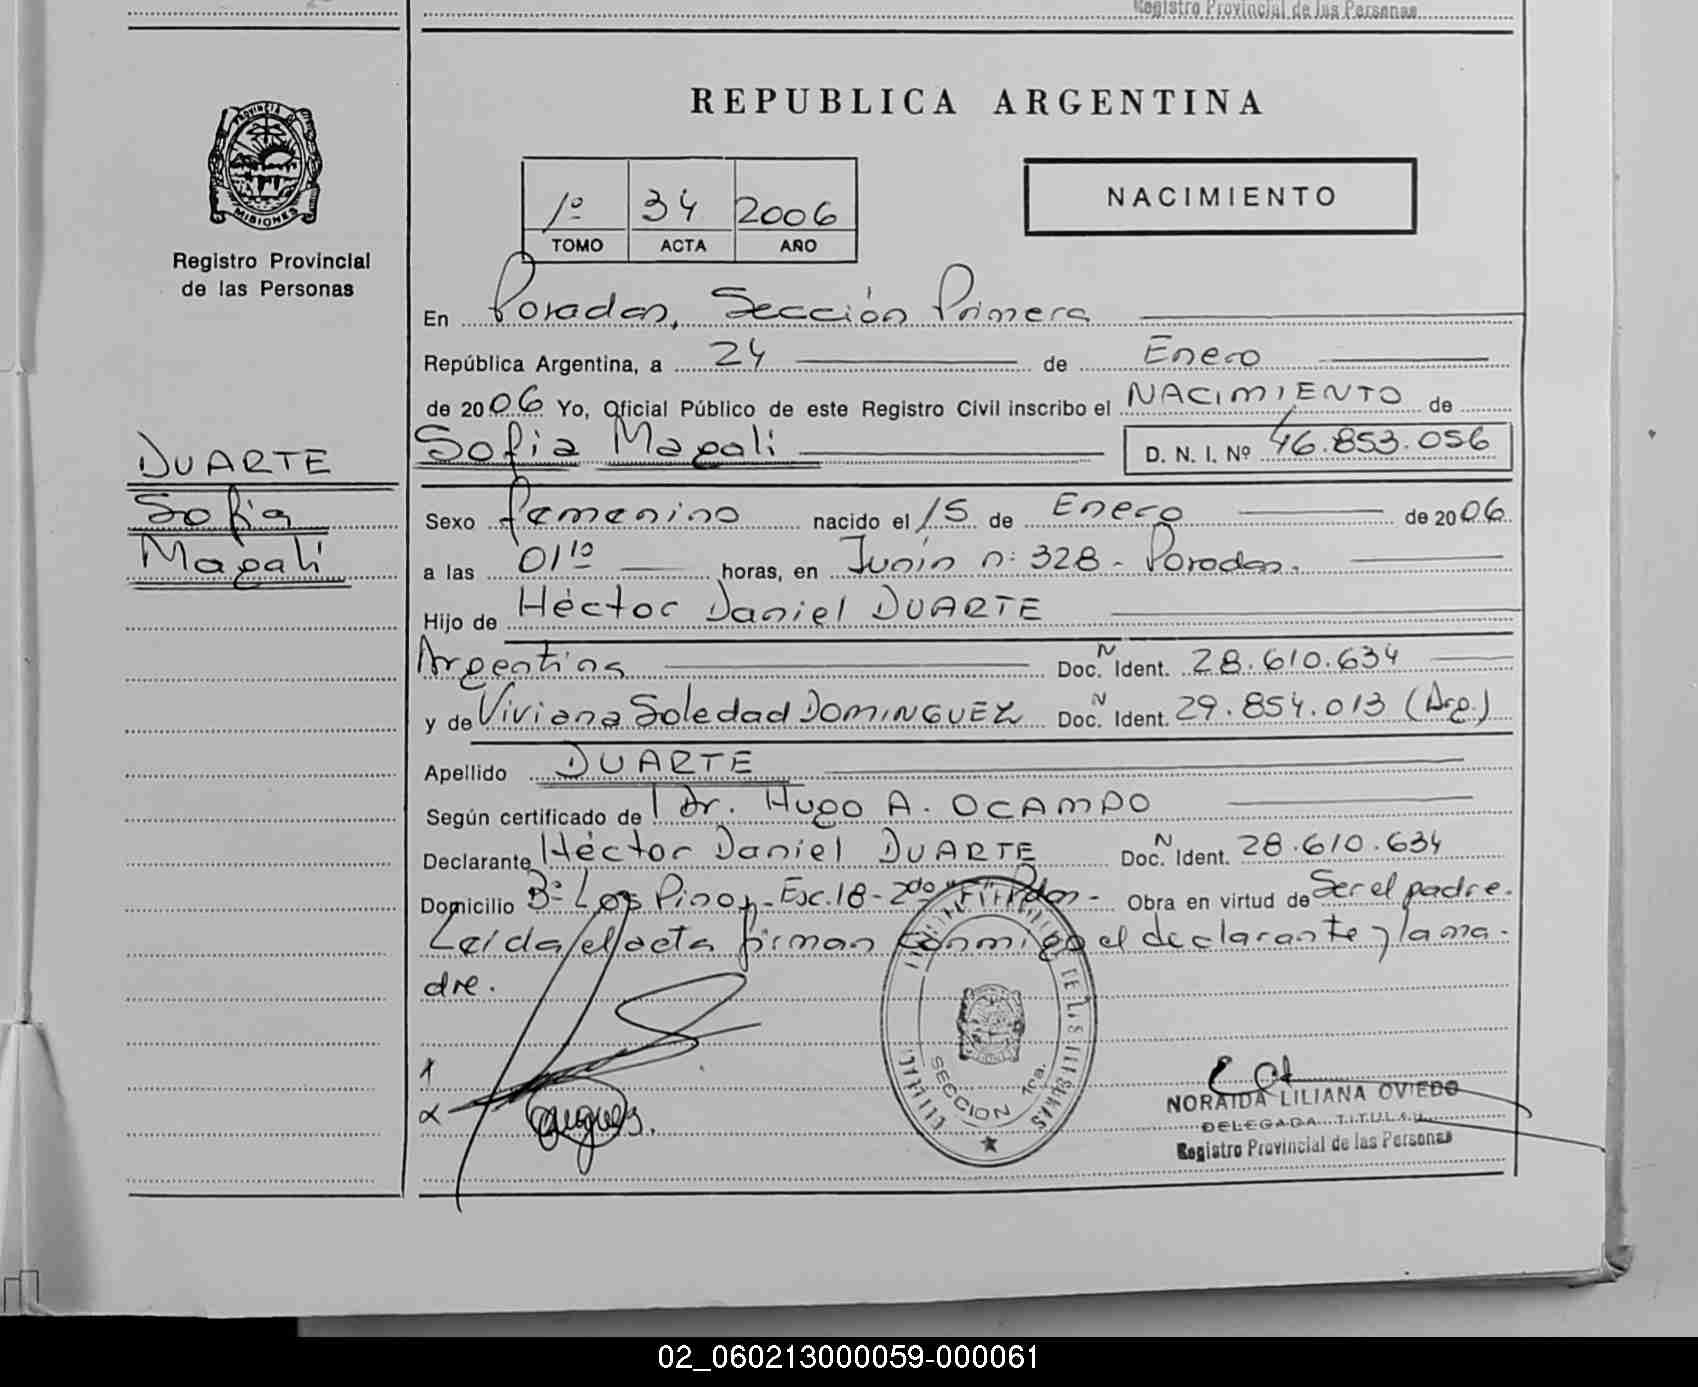 Registro Provincial de las Personas
PROVINCIA DE
MISIONES
Registro Provincial
de las Personas
REPUBLICA ARGENTINA
1º 34 2006
TOMO ACTA AÑO
NACIMIENTO
En Posadas, Sección Primera
República Argentina, a 24 de Enero
de 2006 Yo, Oficial Público de este Registro Civil inscribo el NACIMIENTO de
Sofia Magali
D. N. I. Nº 46.853.056
DUARTE
Sofia
Magali
Sexo femenino nacido el 15 de Enero de 2006
a las 01¹⁰ horas, en Junín n: 328 - Posadas.
Hijo de Héctor Daniel DUARTE
Argentina Doc. N Ident. 28.610.634
y de Viviana Soledad DOMINGUEZ Doc. N Ident. 29.854.013 (Arg.)
Apellido DUARTE
Según certificado de Dr. Hugo A. OCAMPO
Declarante Héctor Daniel DUARTE Doc. N Ident. 28.610.634
Domicilio Bº Los Pinos - Esc. 18 - 2do Pdas - Obra en virtud de Ser el padre.
Leída el acta firman conmigo el declarante y la ma-
dre.
SECCION 1ra.
NORAIDA LILIANA OVIEDO
DELEGADA TITULAR
Registro Provincial de las Personas
02_060213000059-000061